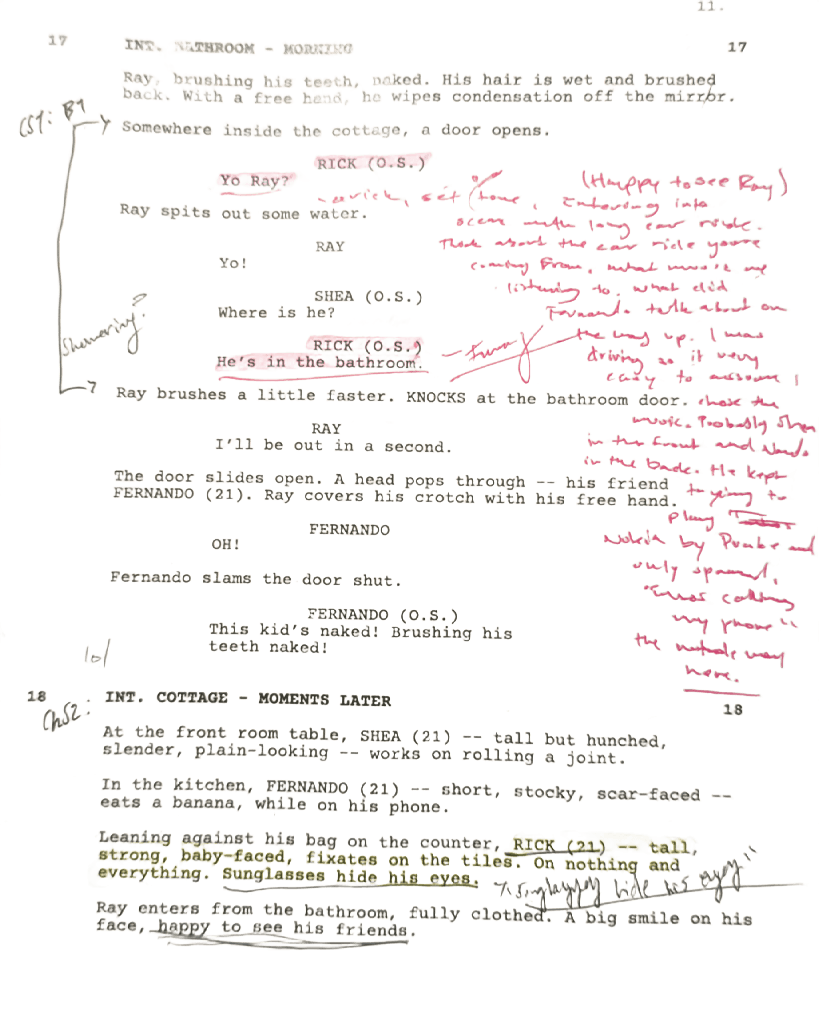 11.
17 INT. BATHROOM - MORNING 17
Ray, brushing his teeth, naked. His hair is wet and brushed
back. With a free hand, he wipes condensation off the mirror.
Somewhere inside the cottage, a door opens.
RICK (O.S.)
Yo Ray?
(Happy to see Ray)
Entering into
scene with long car ride.
Think about the car ride you're
coming from, what music
listening to, what did
Fernando talk about on
the way up. I was
driving so it very
easy to assume I
chose the
music. Probably Shea
in the front and Nando
in the back. He kept
trying to
play
Nokia by Drake and
only spammed,
"Who's calling
my phone"
the whole way
here.
Ray spits out some water.
RAY
Yo!
SHEA (O.S.)
Where is he?
Showering?
RICK (O.S.)
He's in the bathroom.
Ray brushes a little faster. KNOCKS at the bathroom door.
RAY
I'll be out in a second.
The door slides open. A head pops through -- his friend
FERNANDO (21). Ray covers his crotch with his free hand.
FERNANDO
OH!
Fernando slams the door shut.
FERNANDO (O.S.)
This kid's naked! Brushing his
teeth naked!
18 INT. COTTAGE - MOMENTS LATER 18
At the front room table, SHEA (21) -- tall but hunched,
slender, plain-looking -- works on rolling a joint.
In the kitchen, FERNANDO (21) -- short, stocky, scar-faced --
eats a banana, while on his phone.
Leaning against his bag on the counter, RICK (21) -- tall,
strong, baby-faced, fixates on the tiles. On nothing and
everything. Sunglasses hide his eyes.
hide his eyes"
Ray enters from the bathroom, fully clothed. A big smile on his
face, happy to see his friends.